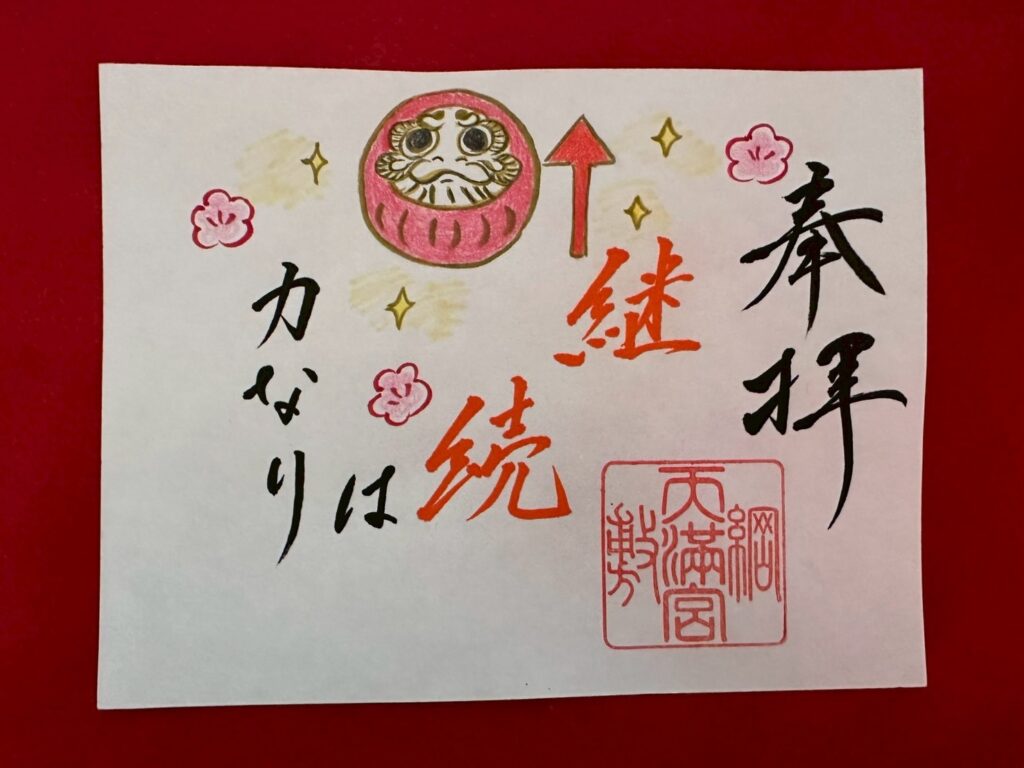 奉拝
継続は
力なり
綱敷天満宮